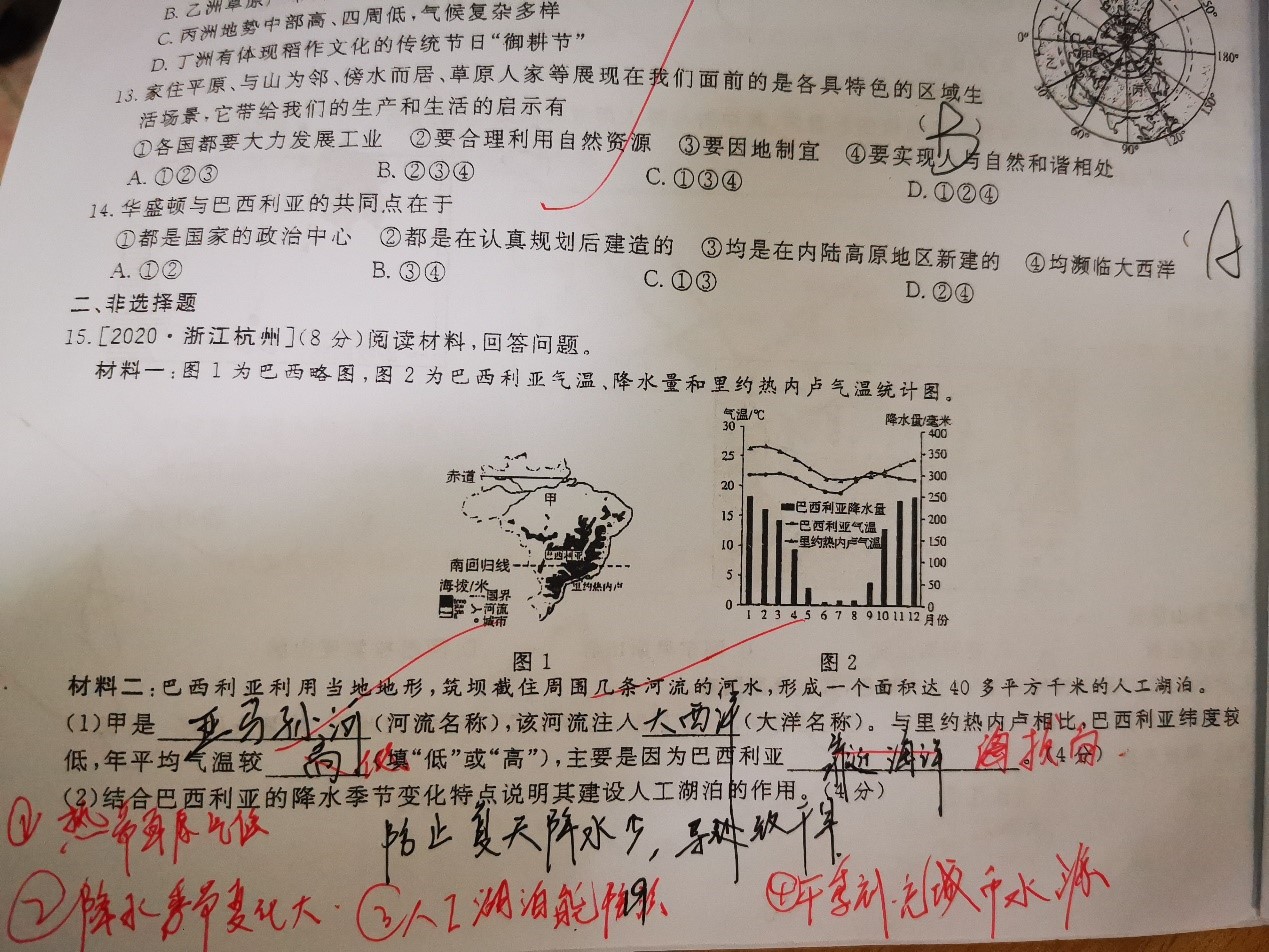 B. 乙洲草原广
C. 丙洲地势中部高、四周低,气候复杂多样
D. 丁洲有体现稻作文化的传统节日“御耕节”
0° 180°
甲 乙 丙
60° 90° 120°
13. 家住平原、与山为邻、傍水而居、草原人家等展现在我们面前的是各具特色的区域生
活场景,它带给我们的生产和生活的启示有 ( B )
①各国都要大力发展工业 ②要合理利用自然资源 ③要因地制宜 ④要实现人与自然和谐相处
A. ①②③ B. ②③④ C. ①③④ D. ①②④
14. 华盛顿与巴西利亚的共同点在于 ( A
①都是国家的政治中心 ②都是在认真规划后建造的 ③均是在内陆高原地区新建的 ④均濒临大西洋
A. ①② B. ③④ C. ①③ D. ②④
二、非选择题
15. [2020·浙江杭州](8分)阅读材料,回答问题。
材料一:图1为巴西略图,图2为巴西利亚气温、降水量和里约热内卢气温统计图。
赤道
甲
巴西利亚
南回归线
里约热内卢
海拔/米
国界
河流
城市
图1
气温/℃ 降水量/毫米
30 25 20 15 10 5 0
400 350 300 250 200 150 100 50 0
巴西利亚降水量
巴西利亚气温
里约热内卢气温
1 2 3 4 5 6 7 8 9 10 11 12 月份
图2
材料二:巴西利亚利用当地地形,筑坝截住周围几条河流的河水,形成一个面积达40多平方千米的人工湖泊。
(1)甲是 亚马孙河 (河流名称),该河流注入 大西洋 (大洋名称)。与里约热内卢相比,巴西利亚纬度较
低,年平均气温较 高 低 (填“低”或“高”),主要是因为巴西利亚 靠近海洋 海拔高 。(4分)
(2)结合巴西利亚的降水季节变化特点说明其建设人工湖泊的作用。(4分)
防止夏天降水少,导致干旱
①热带草原气候
②降水季节变化大
③人工湖泊能
④干季补充城市水源